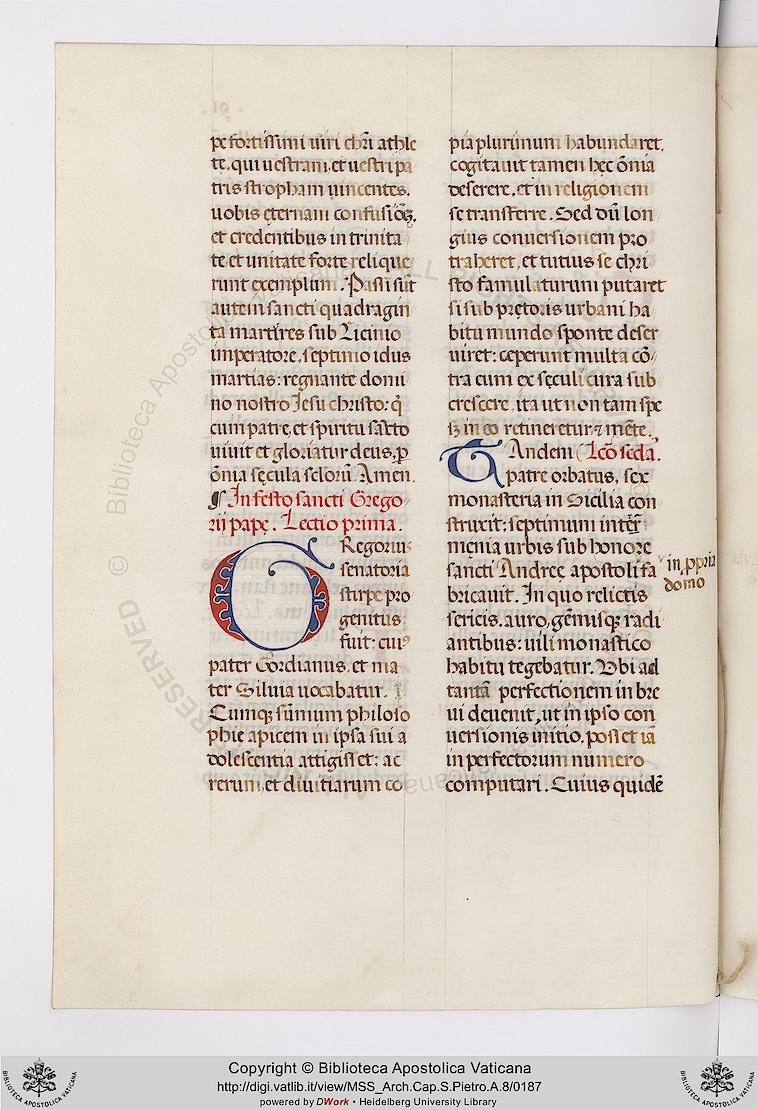 pe fortissimi uiri chr̄i athle
te. qui uestram, et uestri pa
tris stropham uincentes.
uobis ęternam confusiōēꝫ.
et credentibus in trinita
te, et unitate forte relique
runt exemplum. Passi sūt
autem sancti quadragin
ta martires sub Licinio
imperatore, septimo idus
martias: regnante domi
no nostro Jesu christo: q̄
cum patre, et spiritu sācto
uiuit et gloriatur deus, p̱
ōnia sęcula sc̄lorū. Amen.
¶ In festo sancti Grego
rij papę. Lectio prima.
GRegorius
senatoria
stirpe pro
genitus
fuit: cui9
pater Gordianus, et ma
ter Siluia uocabatur.
Cumqꝫ sūmum philoso
phie apicem in ipsa sui a
dolescentia attigisset: ac
rerum, et diuitiarum co
pia plurimum habundaret,
cogitauit tamen hęc ōnia
deserere, et in religionem
se transferre. Sed dū lon
gius conuersionem pro
traheret, et tutius se chri
sto famulaturum putaret
si sub pretoris urbani ha
bitu mundo sponte deser
uiret: ceperunt multa cō
tra eum ex sęculi cura sub
crescere, ita ut non tam spe
sꝫ in eo retineretur, ⁊ mēte.
TAndem Lc̄o scda.
patre orbatus, sex
monasteria in Sicilia con
struxit: septimum inter
męnia urbis sub honore
sancti Andreę apostoli fa
bricauit. In quo relictis
sericis, auro, gēmisqꝫ radi
antibus: uili monastico
habitu tegebatur. Vbi ad
tantā perfectionem in bre
ui deuenit, ut in ipso con
uersionis initio, posset iā
in perfectorum numero
computari. Cuius quidē
in p̱pria
domo
© Biblioteca Apostolica Vaticana
RESERVED
Copyright © Biblioteca Apostolica Vaticana
http://digi.vatlib.it/view/MSS_Arch.Cap.S.Pietro.A.8/0187
powered by DWork • Heidelberg University Library
BIBLIOTECA APOSTOLICA VATICANA
BIBLIOTECA APOSTOLICA VATICANA